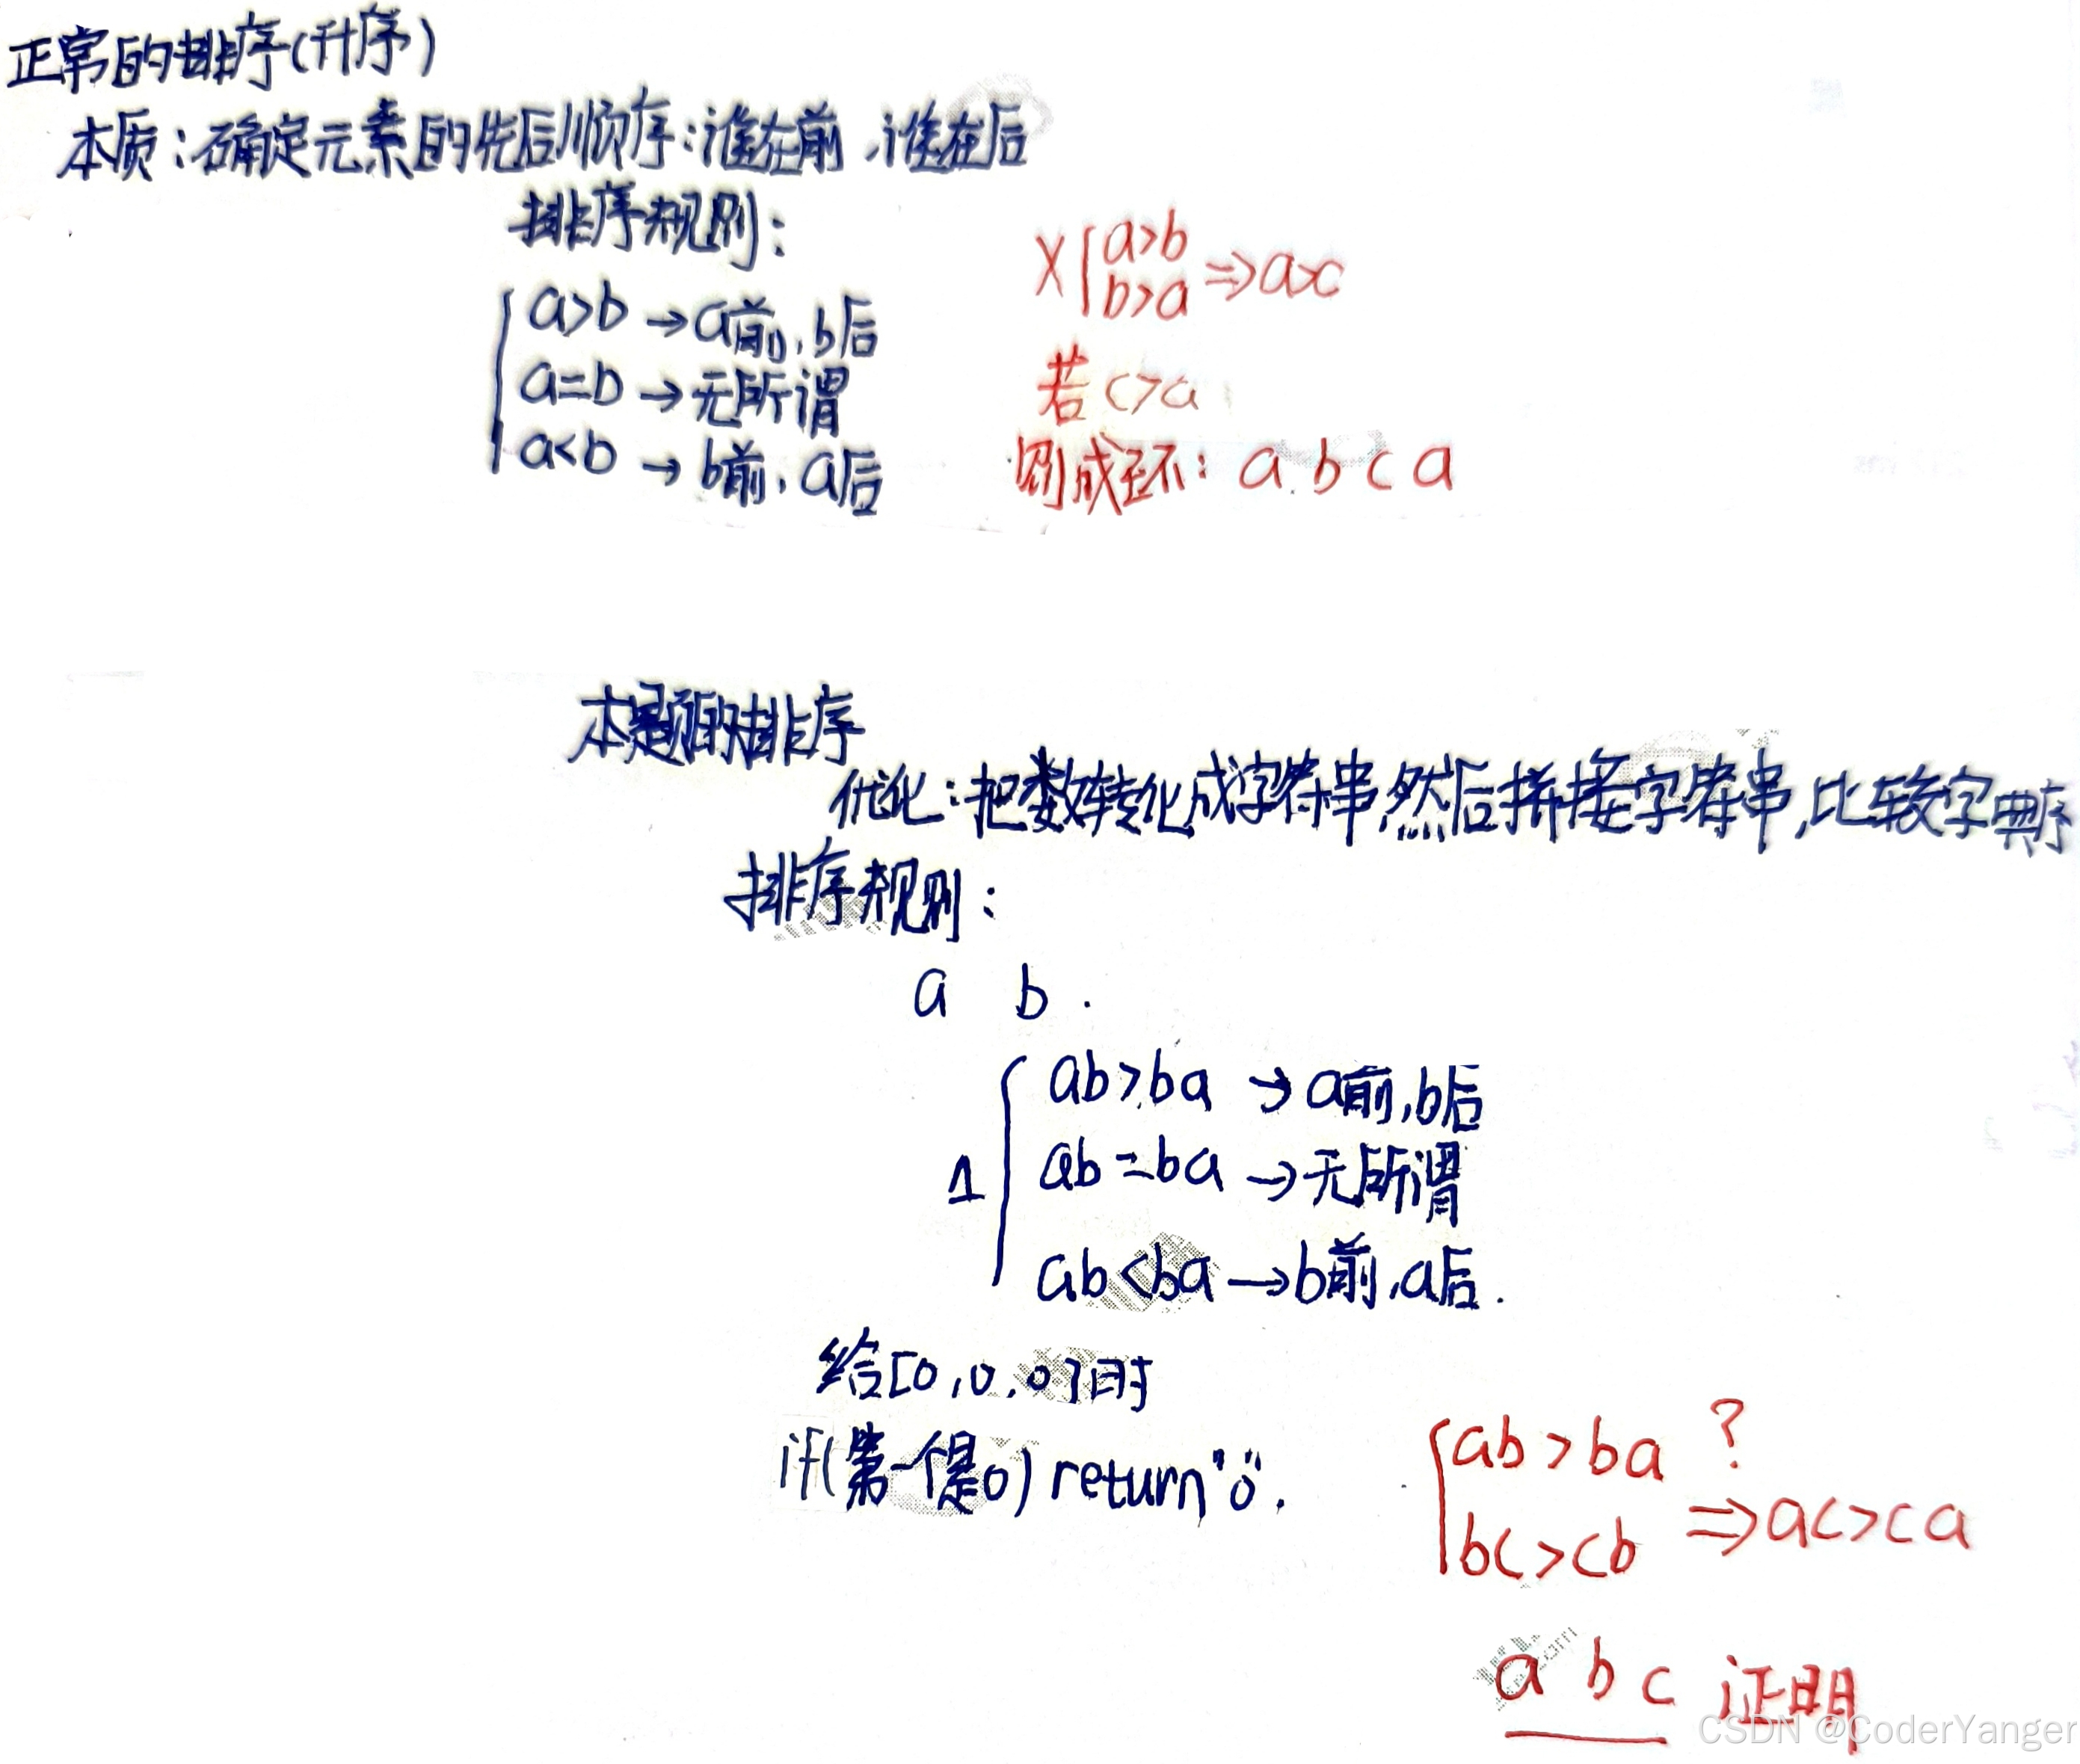 正常的排序(升序)
本质:确定元素的先后顺序:谁在前,谁在后
排序规则:
a>b → a前,b后
a=b → 无所谓
a<b → b前,a后
X { a>b
b>a ⇒ a>c
若 c>a
则成环: a b c a
本题的排序
优化:把数转化成字符串,然后拼接字符串,比较字典序
排序规则:
a b .
ab>ba → a前,b后
1 { ab=ba → 无所谓
ab<ba → b前,a后.
给[0,0,0]时
if(第一个是0) return "0".
ab>ba ?
bc>cb ⇒ ac>ca
a b c 证明
CSDN @CoderYanger